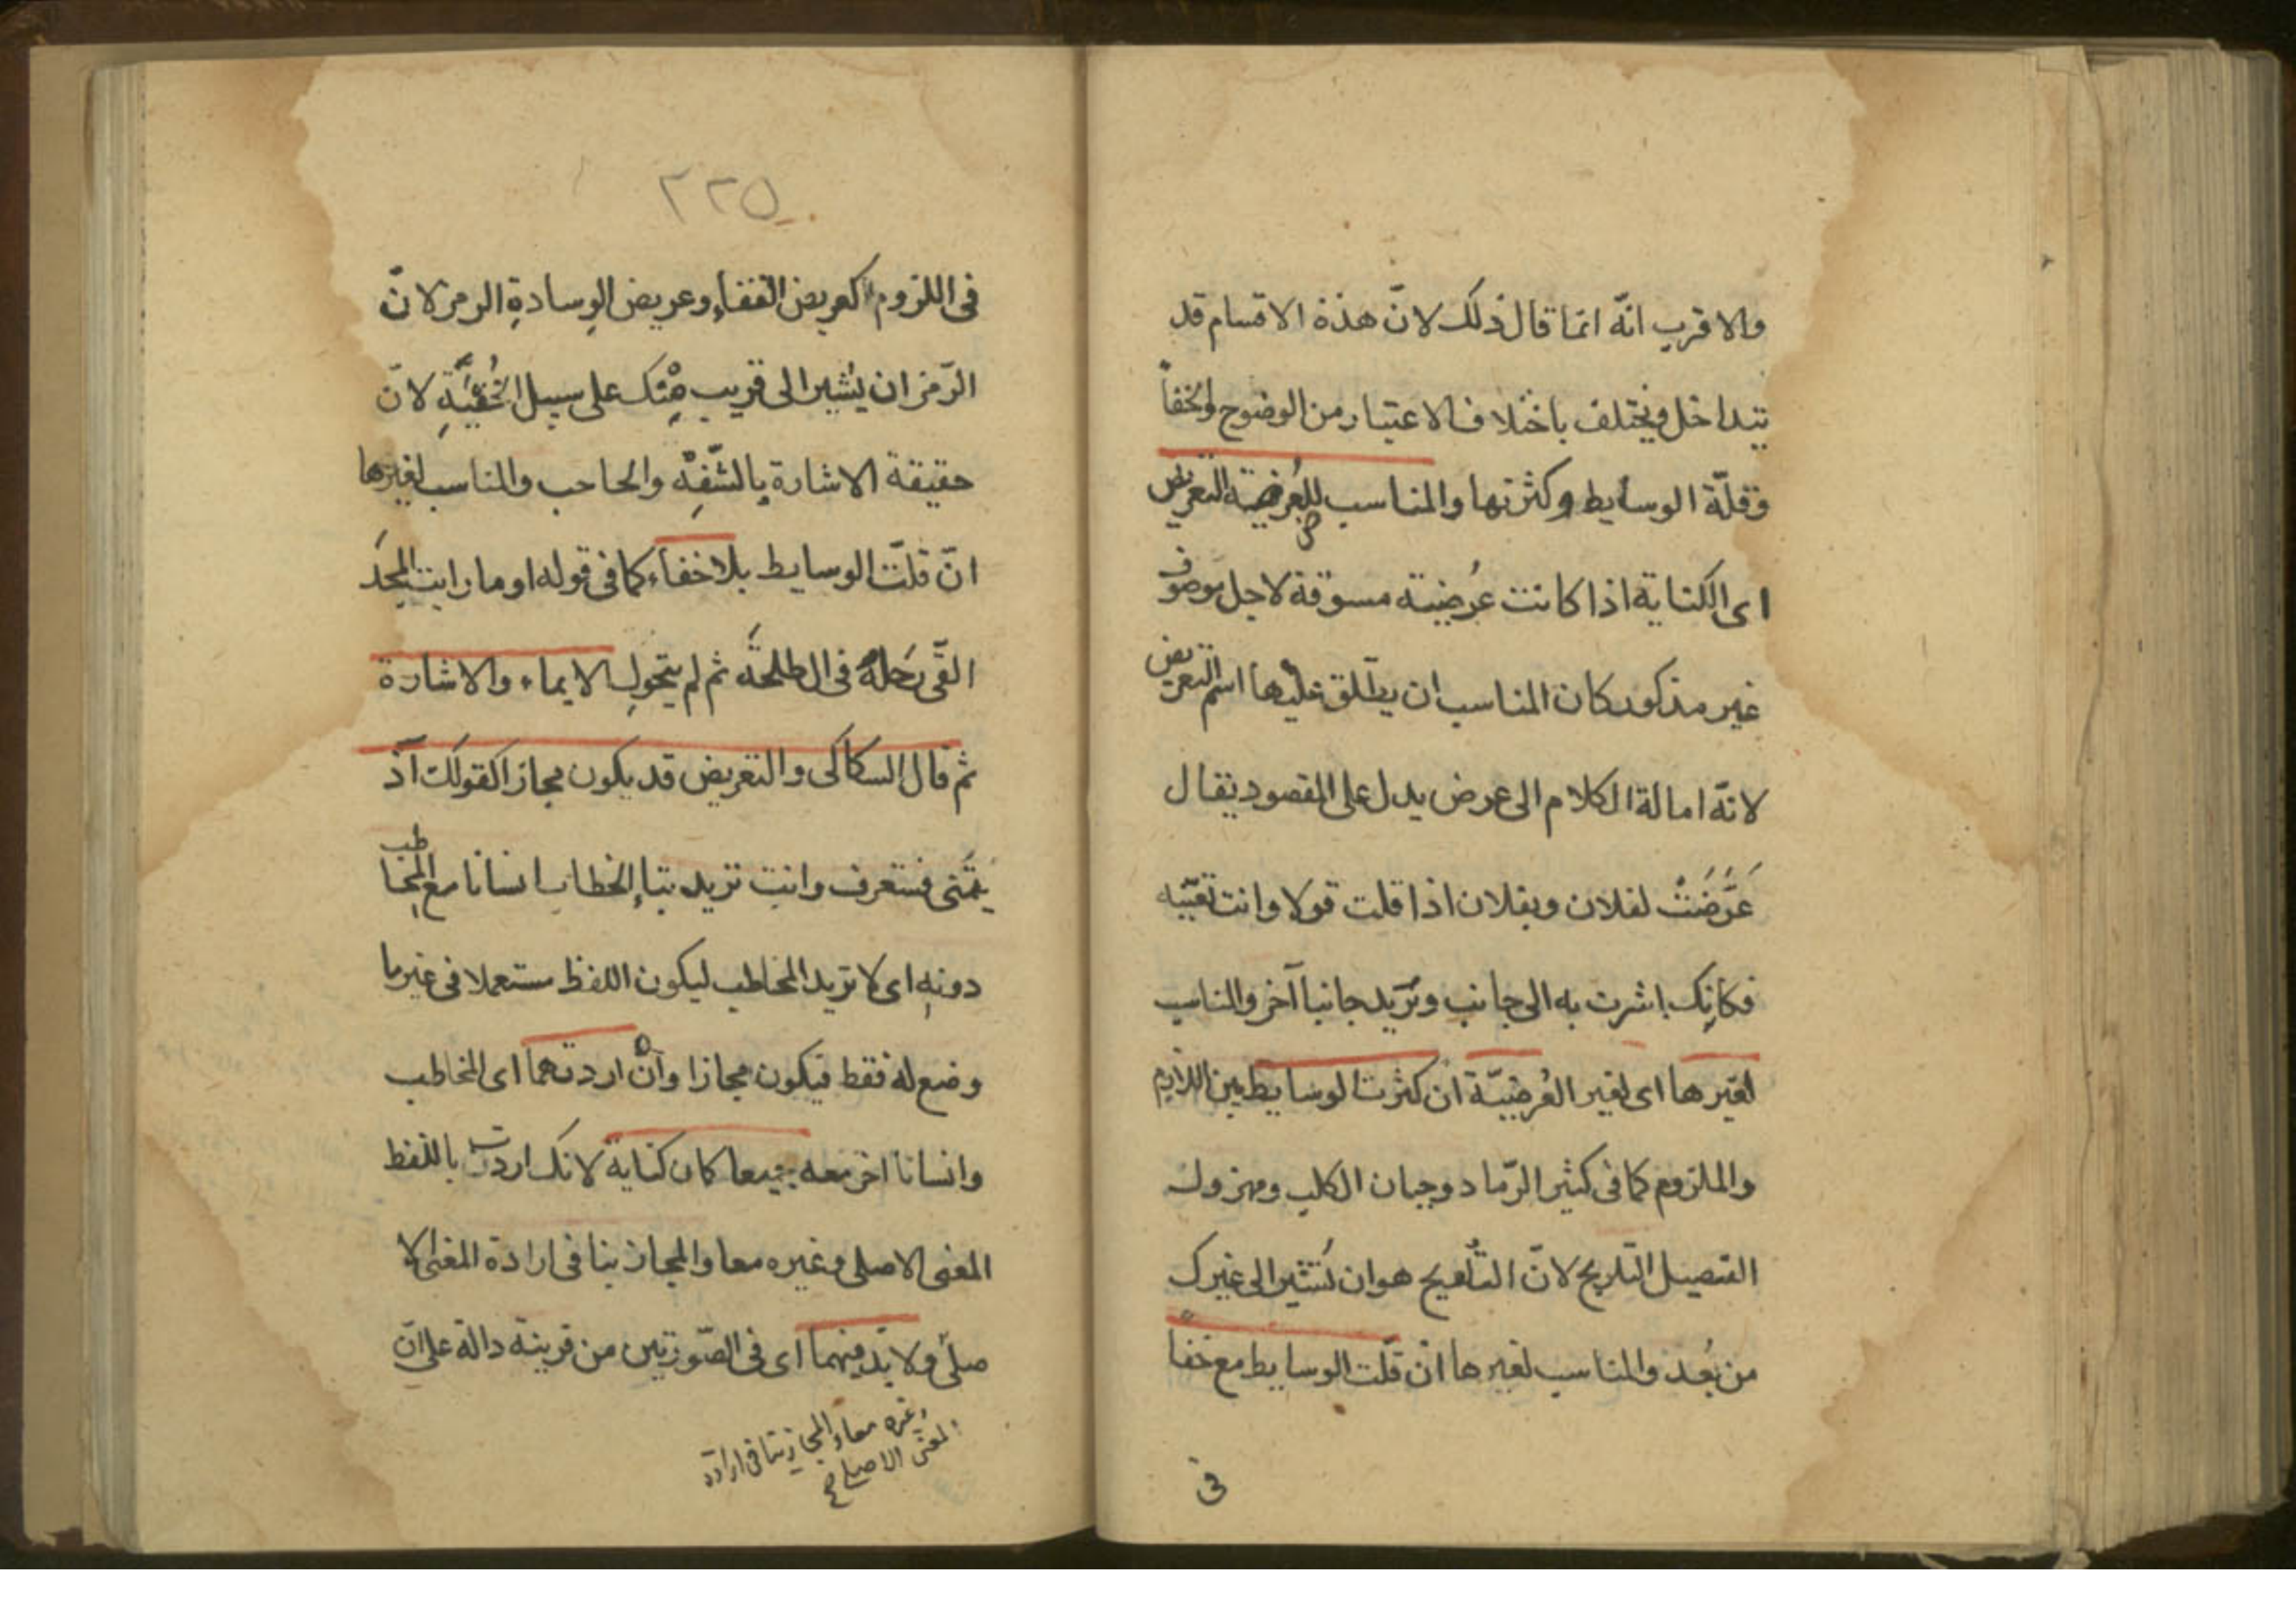 والاقرب انّه انما قال ذلك لانّ هذه الاقسام قد
تتداخل ويختلف باختلاف الاعتبار من الوضوح والخفأ
وقلّة الوسايط وكثرتها والمناسب للعُرضية التعريض
اى الكناية اذا كانت عُرضيته مسوقة لاجل موصوف
غير مذكور كان المناسب ان يطلق عليها اسم التعريض
لانّه امالة الكلام الى عرض يدل على المقصود يقال
عَرَّضَتُ لفلان وبفلان اذا قلت قولا وانت تعنيه
فكانك اشرت به الى جانب وتريد جانبا آخر والمناسب
لغيرها اى لغير العُرضيّة ان كثرت الوسايط بين اللازم
والملزوم كما فى كثير الرّماد وجبان الكلب ومهزول
الفصيل التلويح لانّ التلويح هو ان تُشير الى غيرك
من بُعد والمناسب لغيرها ان قلّت الوسايط مع خفأ
فى
٢٢٥
فى اللزوم كعريض القفاء وعريض الوسادةِ الرمز لانّ
الرّمز ان يُشير الى قريب مِنْك على سبيل الخُفْيَةِ لانّ
حقيقة الاشارة بالشّفِه والحاجب والمناسب لغيرها
انّ قلّت الوسايط بلا خفاء كما فى قوله او ما رايت المجدَ
القَى رَحلهُ فى ال طلحَة ثم لم يتحولِ الايماء والاشارة
ثم قال السكاكى والتعريض قد يكون مجازا كقولك آذ
يْتَنى فستعرف وانت تريد بتاءِ الخطاب انسانا مع المخاطب
دونهِ اى لا تريد المخاطب ليكون اللفظ مستعملا فى غير ما
وضع له فقط فيكون مجازا وان اردتهما اى المخاطب
وانسانا اخر معه جميعا كان كناية لانك اردت باللفظ
المعنى الاصلى وغيره معا والمجاز ينافى ارادة المعنى الا
صلى ولا بدّ فيهما اى فى الصّورتين من قرينة دالة على انّ
وغيره معا والمجاز ينافى ارادة
المعنى الاصلى صح